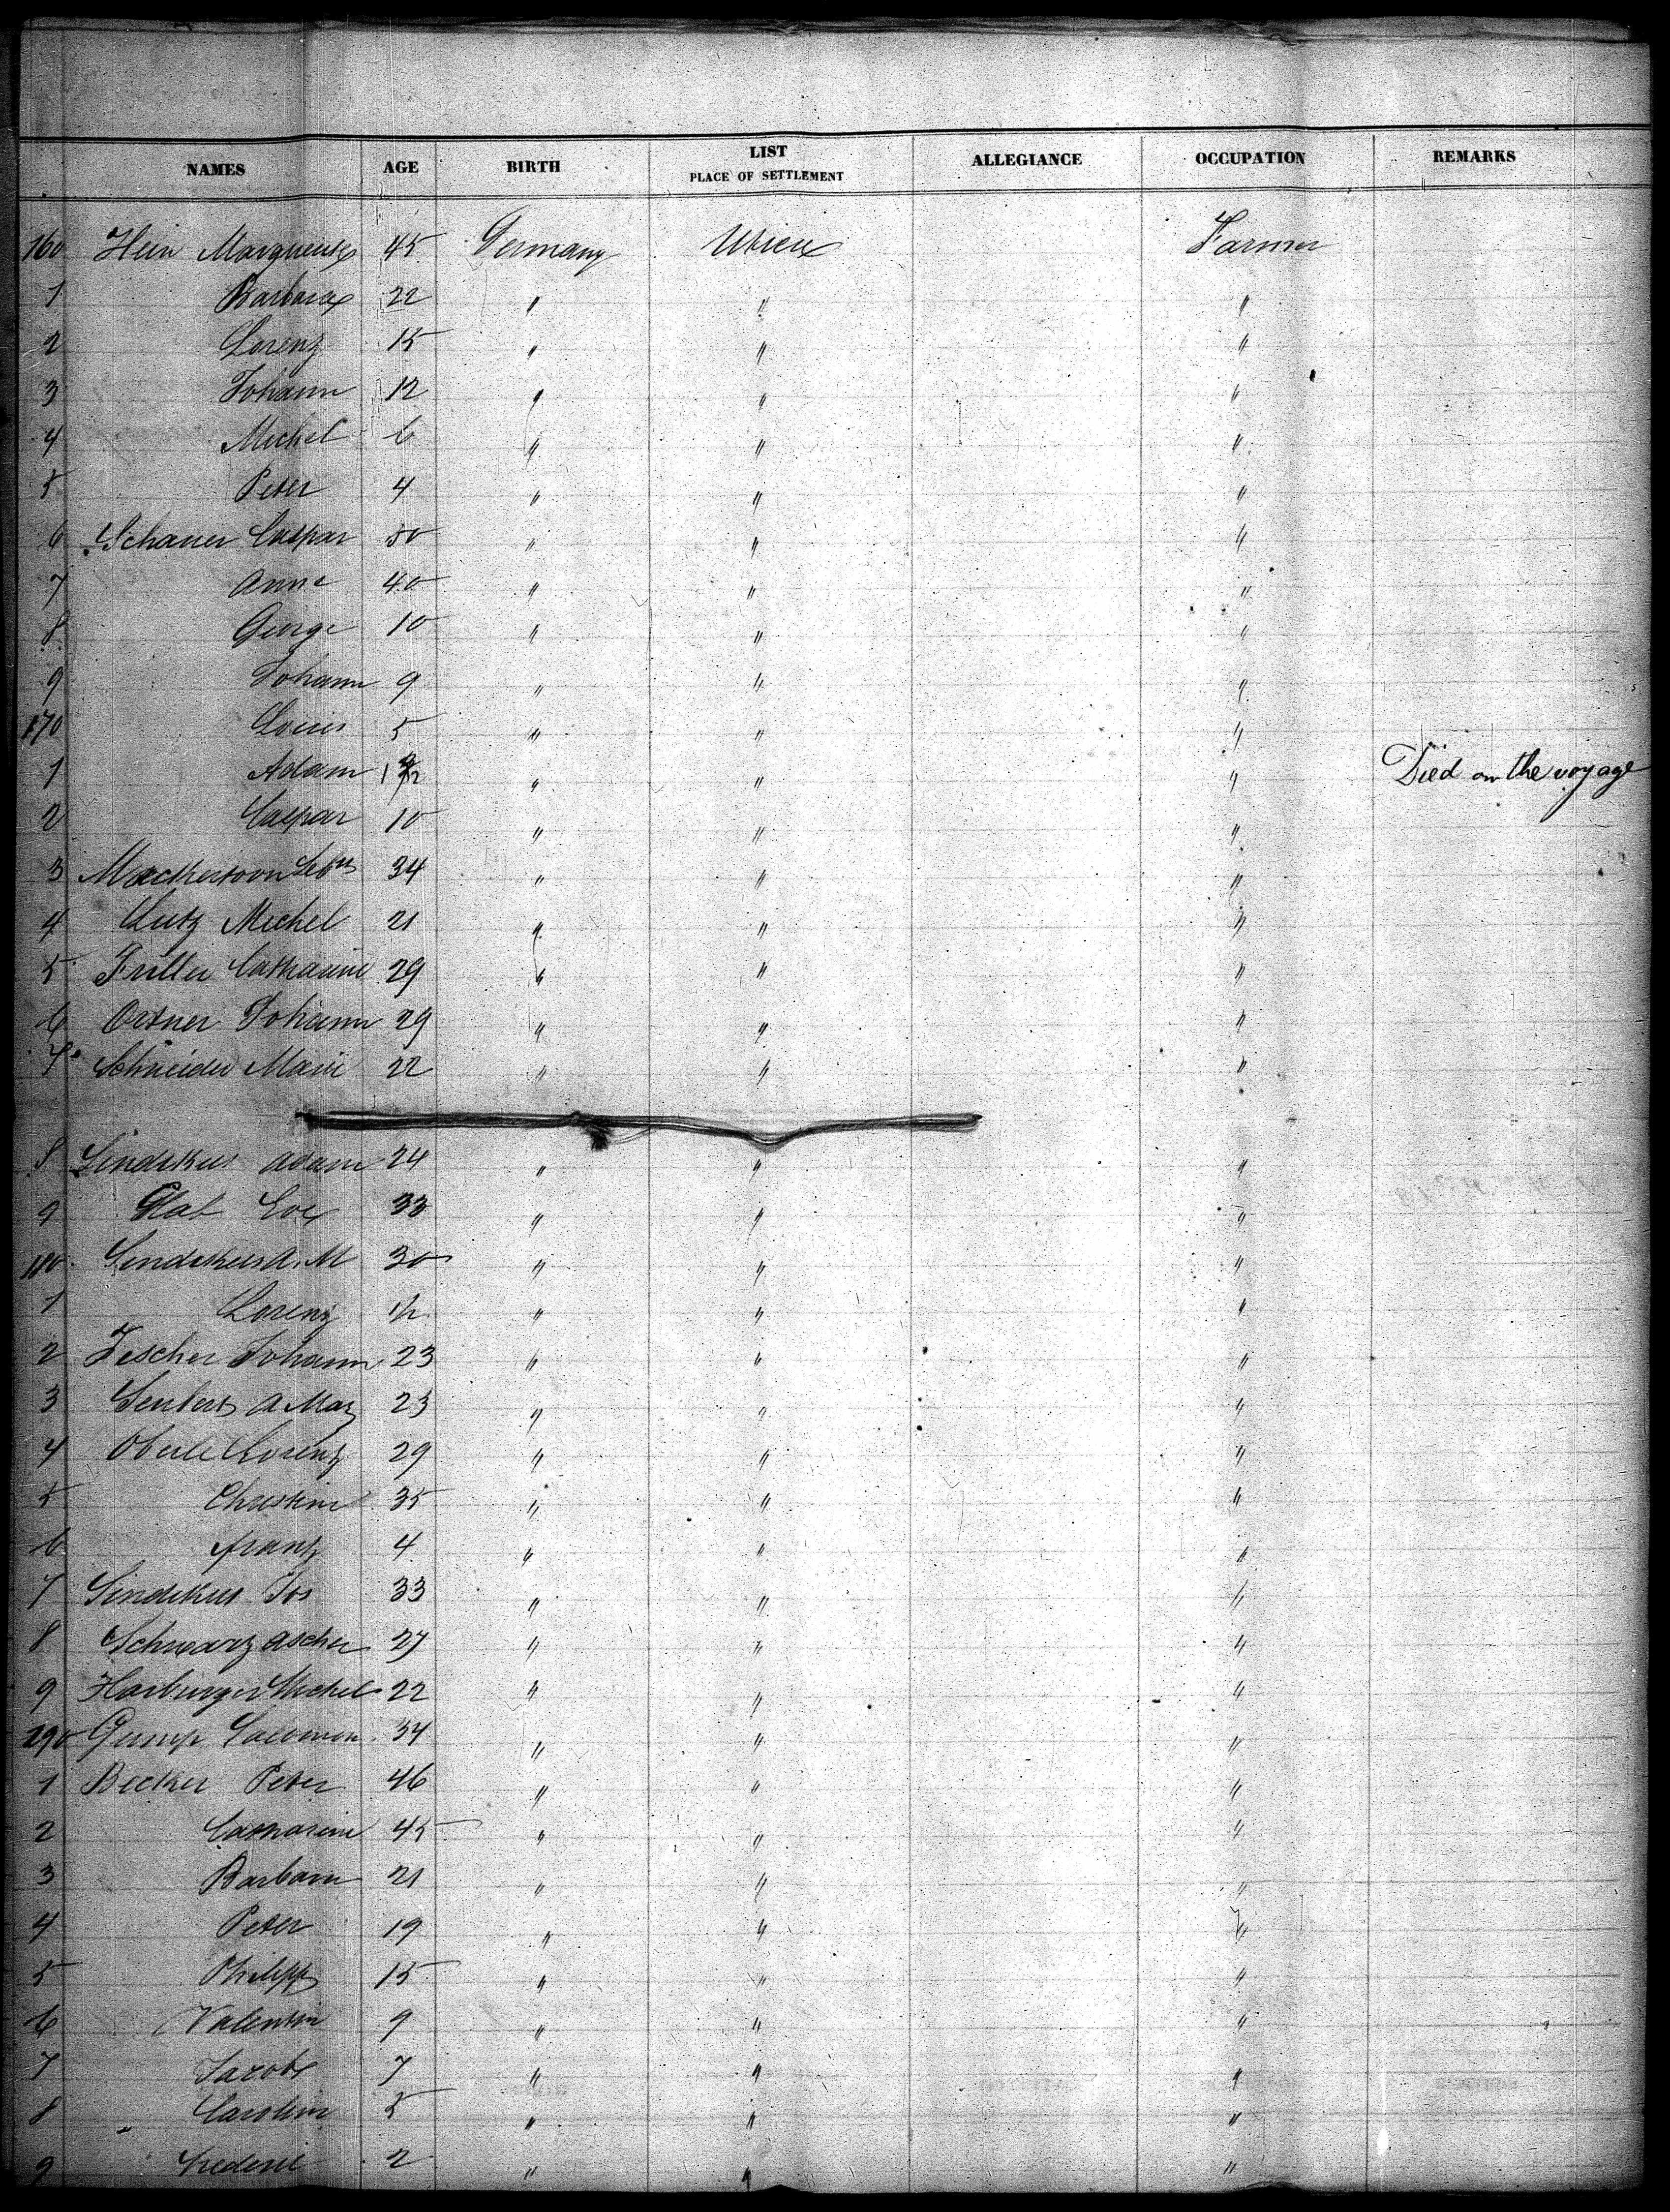 NAMES AGE BIRTH LIST PLACE OF SETTLEMENT ALLEGIANCE OCCUPATION REMARKS
160 Hein 45 Germany Farmer
1 Barbara 22 " " "
2 Lorenz 15 " " "
3 Johann 12 " " "
4 Michel 6 " " "
5 Peter 4 " " "
6 Schauer Caspar 50 " " "
7 Anne 40 " " "
8 George 10 " " "
9 Johann 9 " " "
170 Louis 5 " " "
1 Adam " " " Died on the voyage
2 Caspar 10 " " "
3 34 " " "
4 Lutz Michel 21 " " "
5 Catharine 29 " " "
6 Ortner Johann 29 " " "
7 Schneider Marie 22 " " "
8 Adam 24 " " "
9 Eva 33 " " "
180 A. M 30 " " "
1 Lorenz 1/2 " " "
2 Johann 23 " " "
3 Seubert A Mar 23 " " "
4 Oberle Lorenz 29 " " "
5 Christine 35 " " "
6 frantz 4 " " "
7 Jos 33 " " "
8 Schwarz Ascher 27 " " "
9 Harburger Michel 22 " " "
190 Gump Salomon 34 " " "
1 Becker Peter 46 " " "
2 Catharine 45 " " "
3 Barbara 21 " " "
4 Peter 19 " " "
5 Philipp 15 " " "
6 Valentin 9 " " "
7 Jacob 7 " " "
8 " Carolin 5 " " "
9 Frederic 2 " " "